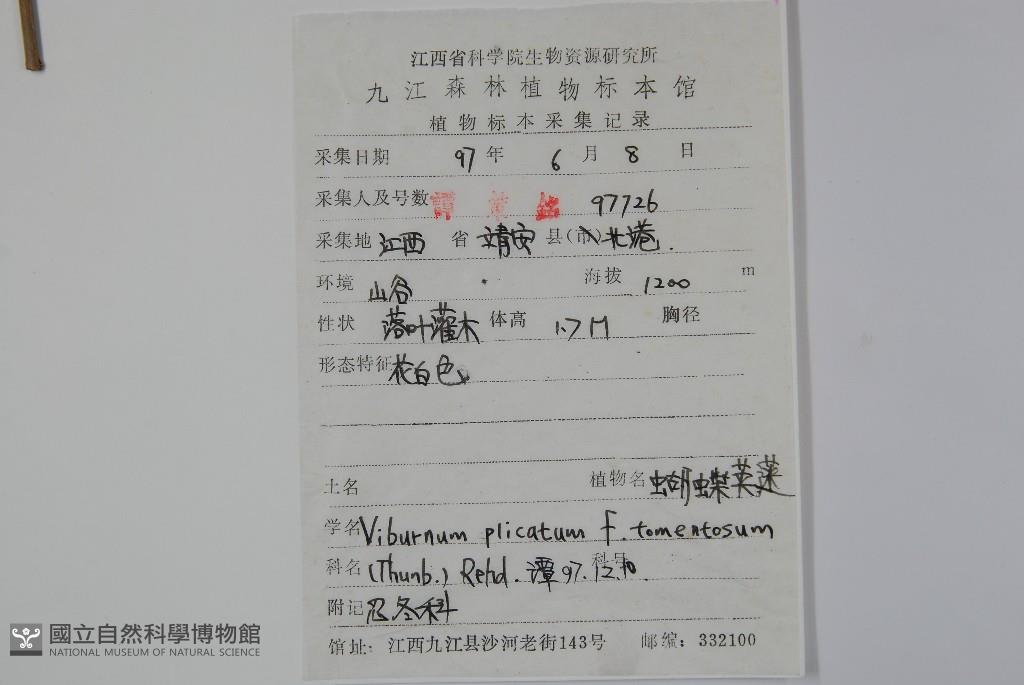 江西省科学院生物资源研究所
九江森林植物标本馆
植物标本采集记录
采集日期 97年 6月 8日
采集人及号数 97726
采集地 江西 省 靖安 县(市) 北港.
环境 山谷 海拔 1200 m
性状 落叶灌木 体高 1.7M 胸径
形态特征 花白色
土名 植物名 蝴蝶荚蒾
学名 Viburnum plicatum f. tomentosum
科名 (Thunb.) Rehd. 谭 97.12.10. 科号
附记 忍冬科
馆址: 江西九江县沙河老街143号 邮编: 332100
國立自然科學博物館
NATIONAL MUSEUM OF NATURAL SCIENCE